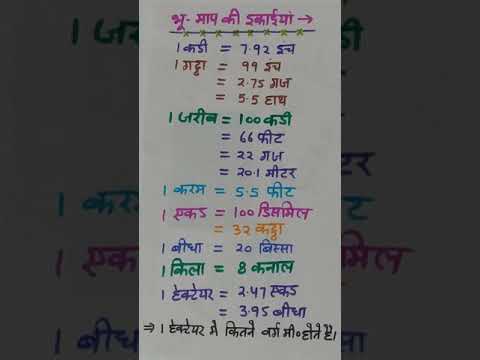 भू- माप की इकाईयां →
1 कडी = 7.92 इंच
1 गट्ठा = 99 इंच
= 2.75 गज
= 5.5 हाथ
1 जरीब = 100 कडी
= 66 फीट
= 22 गज
= 20.1 मीटर
1 करम = 5.5 फीट
1 एकड = 100 डिसमिल
= 32 कट्ठा
1 बीघा = 20 बिस्सा
1 किला = 8 कनाल
1 हेक्टेयर = 2.47 एकड
= 3.95 बीघा
⇒ 1 हेक्टेयर मे कितने वर्ग मी० होते है।